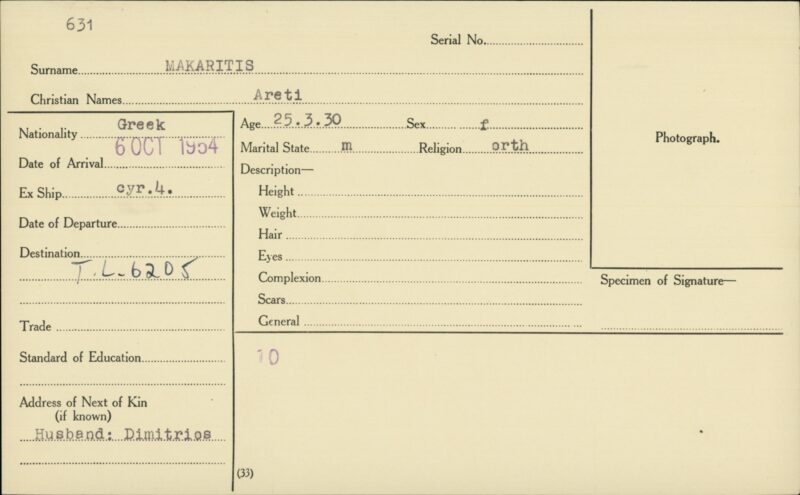 631
Serial No.
Surname MAKARITIS
Christian Names Areti
Nationality Greek
Date of Arrival 6 OCT 1954
Ex Ship cyr.4.
Date of Departure
Destination
T.L-6205
Trade
Standard of Education
Address of Next of Kin
(if known)
Husband: Dimitrios
Age 25.3.30 Sex f
Marital State m Religion orth
Description—
Height
Weight
Hair
Eyes
Complexion
Scars
General
10
(33)
Photograph.
Specimen of Signature—